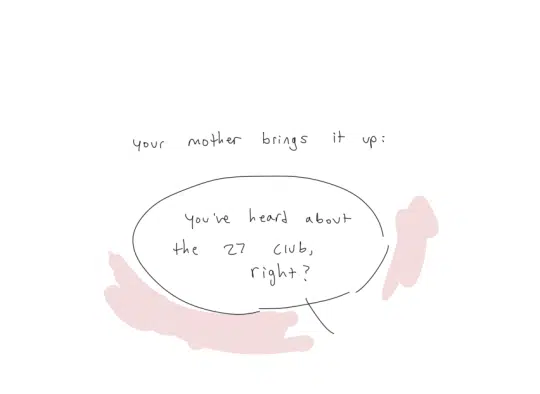 your mother brings it up:
you've heard about
the 27 club,
right?